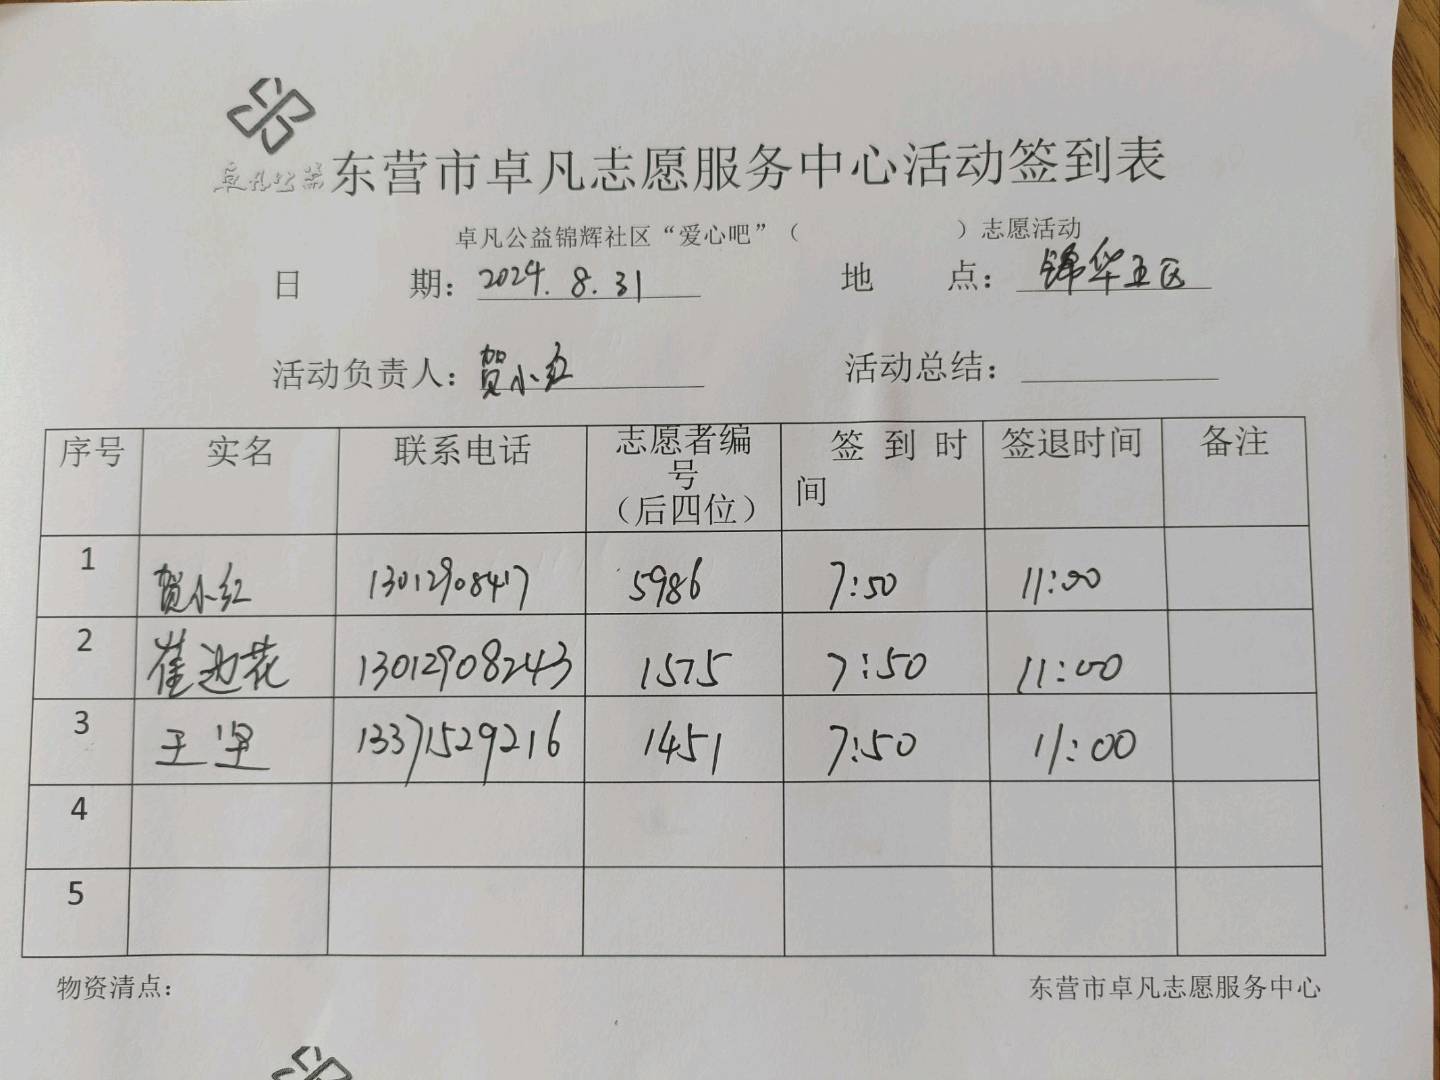 卓凡公益
东营市卓凡志愿服务中心活动签到表
卓凡公益锦辉社区“爱心吧”（ ）志愿活动
日 期：2024.8.31 地 点：锦华五区
活动负责人：贺小红 活动总结：
序号 实名 联系电话 志愿者编号（后四位） 签到时间 签退时间 备注
1 贺小红 13012908417 5986 7:50 11:00
2 崔边花 13012908243 1575 7:50 11:00
3 王坚 13371529216 1451 7:50 11:00
4
5
物资清点： 东营市卓凡志愿服务中心